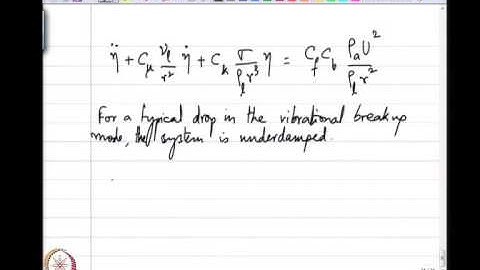 η̈ + C_μ ν_l/r² η̇ + C_k σ/(ρ_l r³) η = C_f C_b ρ_a U²/(ρ_l r²)
For a typical drop in the vibrational breakup
mode, the system is underdamped.